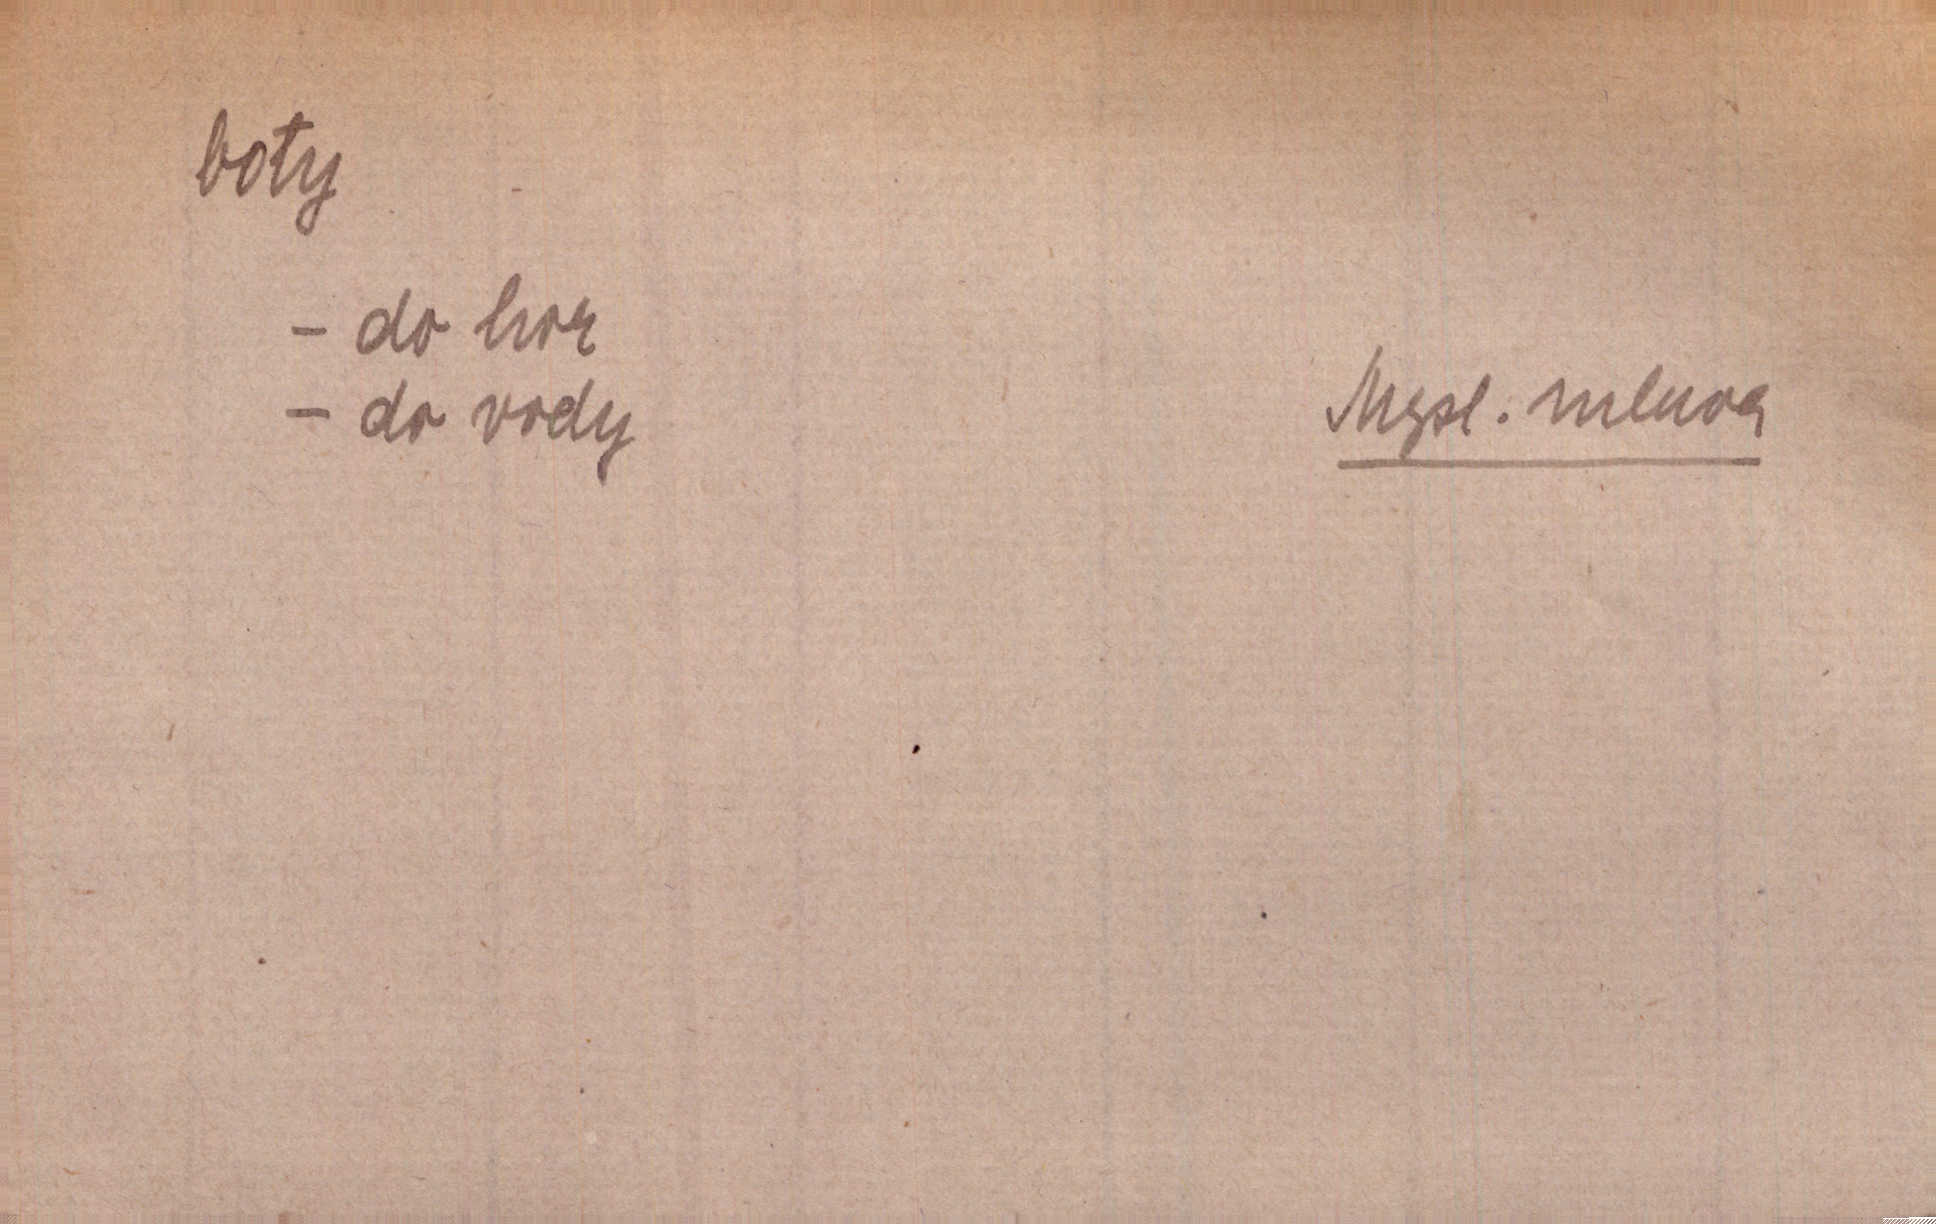 boty
- do hor
- do vody
Mysl. mluva